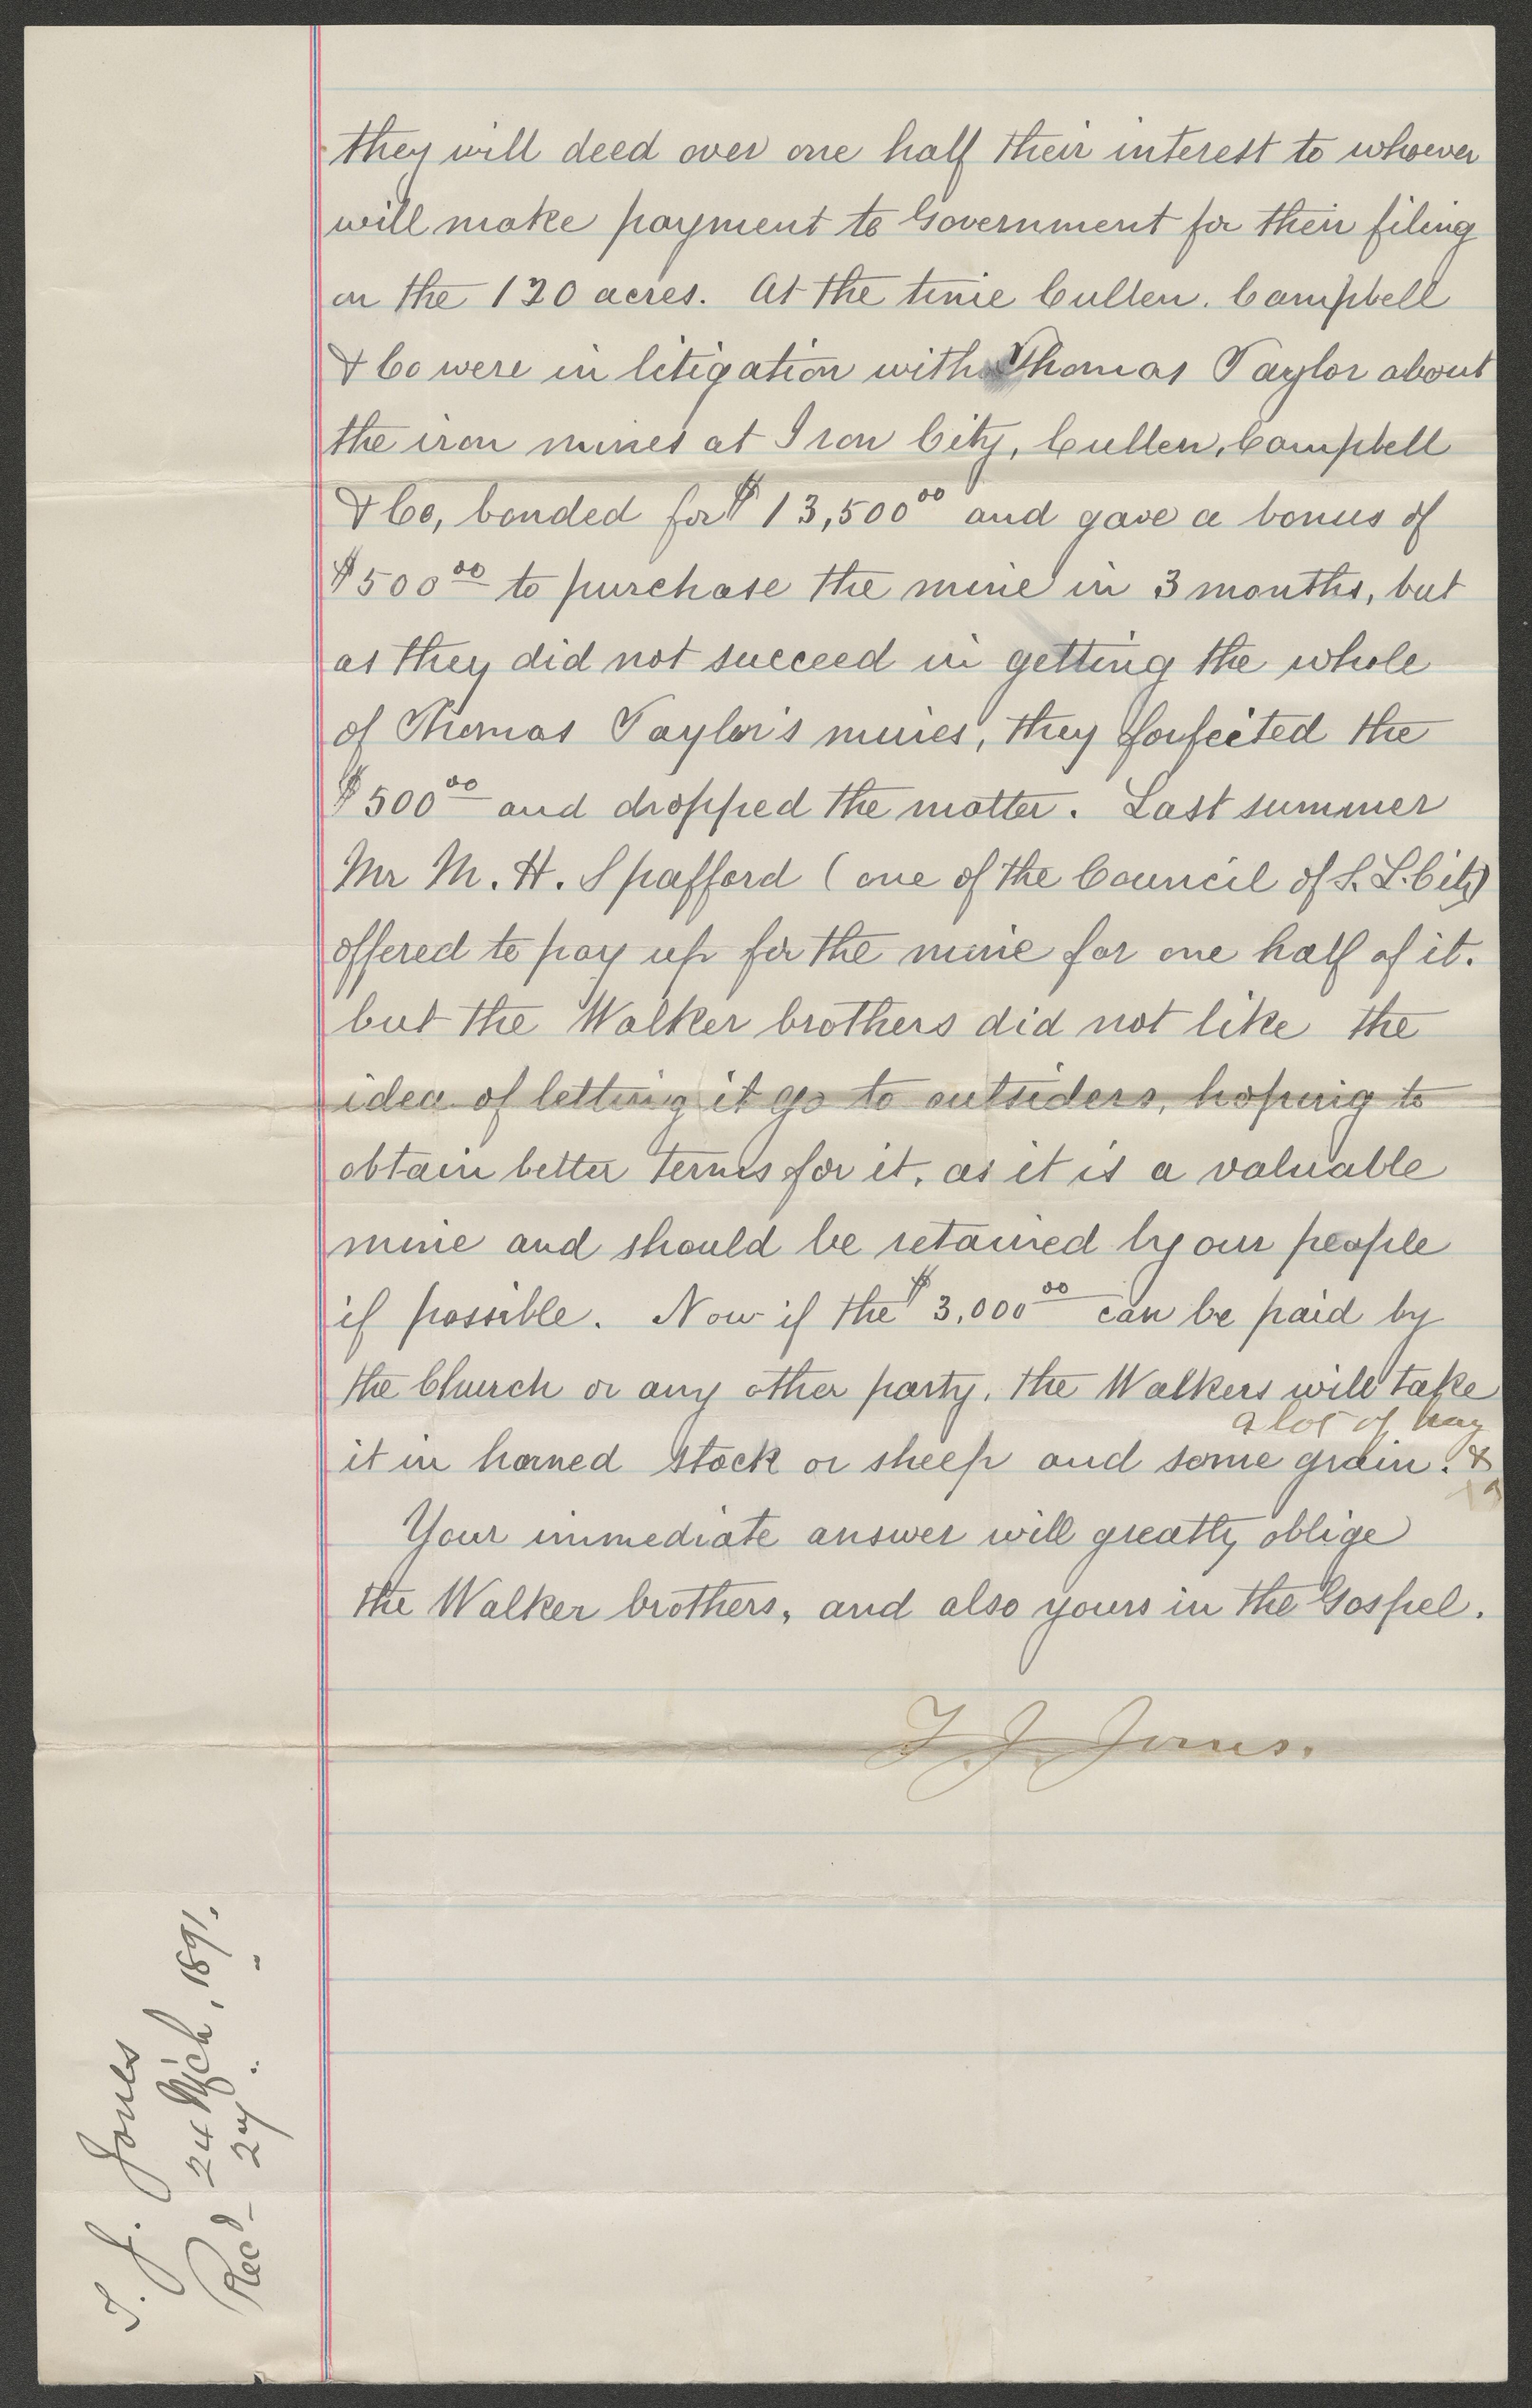 they will deed over one half their interest to whoever
will make payment to Government for their filing
on the 120 acres. At the time Cullen. Campbell
& Co were in litigation with Thomas Taylor about
the iron mines at Iron City, Cullen, Campbell
& Co, bonded for $13,500 00 and gave a bonus of
$500 00 to purchase the mine in 3 months, but
as they did not succeed in getting the whole
of Thomas Taylor's mines, they forfeited the
$500 00 and dropped the matter. Last summer
Mr M. H. Spafford (one of the Council of S. L. City)
offered to pay up for the mine for one half of it.
but the Walker brothers did not like the
idea of letting it go to outsiders, hoping to
obtain better terms for it, as it is a valuable
mine and should be retained by our people
if possible. Now if the $3,000 00 can be paid by
the Church or any other party, the Walkers will take
a lot of hay
it in horned stock or sheep and some grain. &
Your immediate answer will greatly oblige
the Walker brothers, and also yours in the Gospel.
T. J. Jones.
T. J. Jones
24 Mch, 1891.
Recd 27 " "